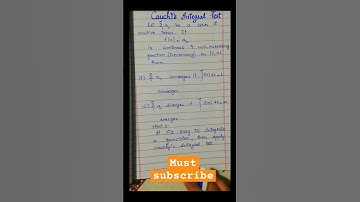 Cauchy's Integral Test
Let Σ aₙ be a series of
positive terms. If
f(n) = aₙ
is continuous & non-increasing
function (Decreasing) on [1, ∞)
then
(1) Σ aₙ converges if ∫ f(x) dx
converges
(2) Σ aₙ diverges if ∫ f(x) dx
diverges
Note :-
If it is easy to integrate
a function, then apply
Cauchy's Integral Test
Must
subscribe